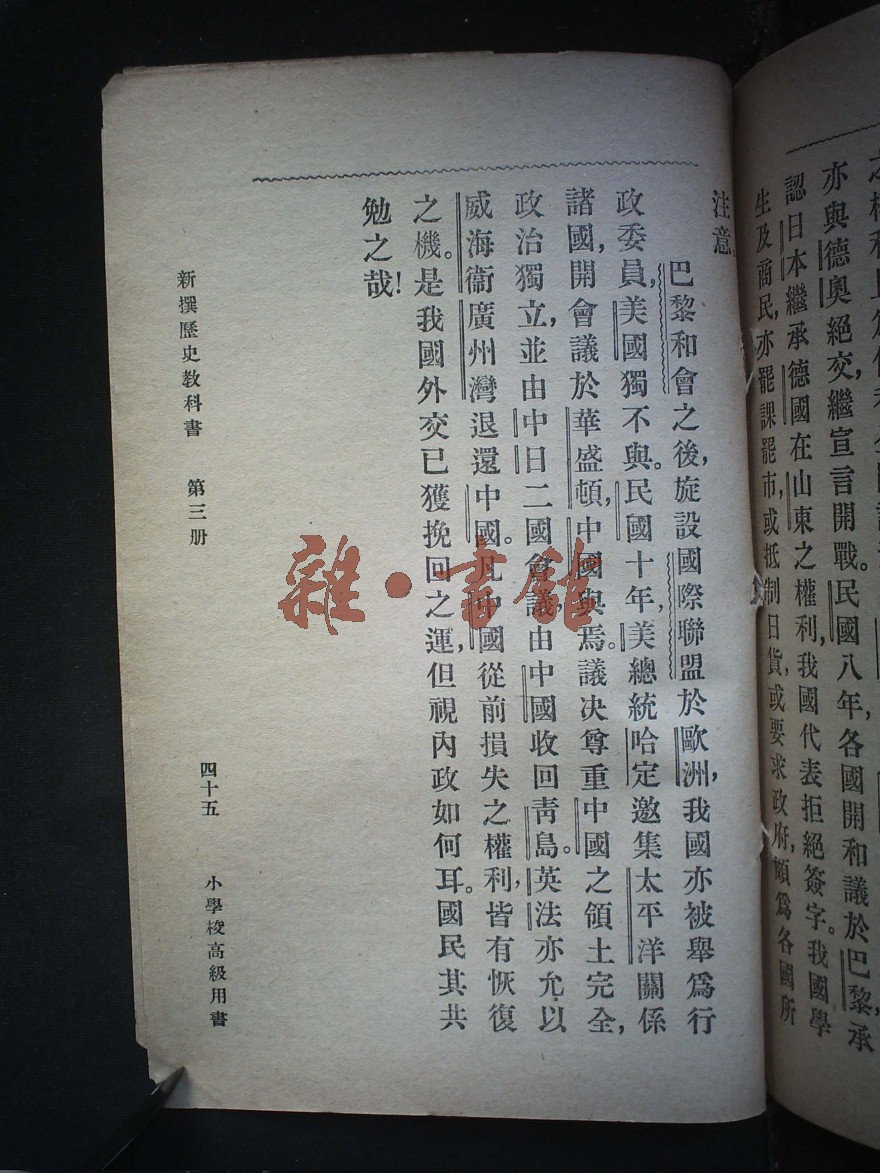 亦與德奧絕交,繼宣言開戰。民國八年,各國開和議於巴黎,承
認日本繼承德國在山東之權利,我國代表拒絕簽字。我國學
生及商民,亦罷課罷市,或抵制日貨,或要求政府,頗爲各國所
注意。
巴黎和會之後,旋設國際聯盟於歐洲,我國亦被舉爲行
政委員,美國獨不與。民國十年,美總統哈定邀集太平洋關係
諸國,開會議於華盛頓,中國與焉。議決尊重中國之領土完全,
政治獨立,並由中日二國會議,由中國收回靑島。英法亦允以
威海衞廣州灣退還中國。凡中國從前損失之權利,皆有恢復
之機。是我國外交已獲挽回之運,但視內政如何耳。國民其共
勉之哉!
新撰歷史教科書 第三册 四十五 小學校高級用書
雜·書館